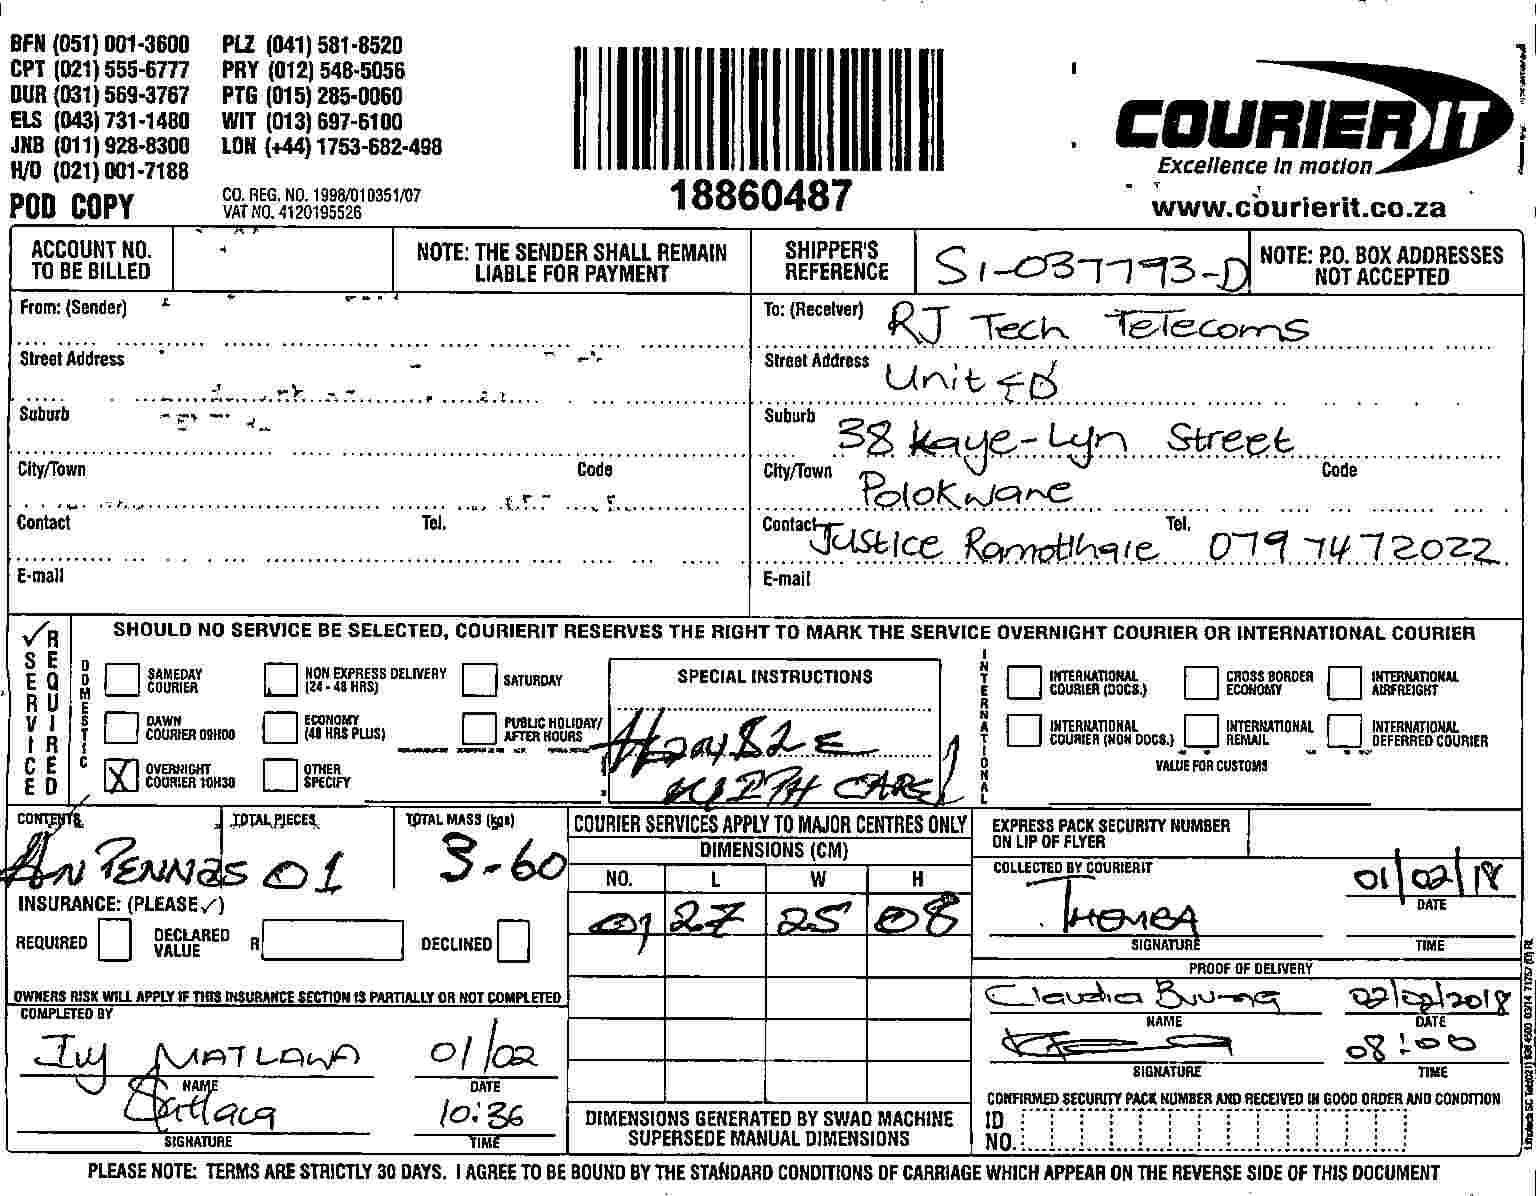 BFN (051) 001-3600 PLZ (041) 581-8520
CPT (021) 555-6777 PRY (012) 548-5056
DUR (031) 569-3767 PTG (015) 285-0060
ELS (043) 731-1480 WIT (013) 697-6100
JNB (011) 928-8300 LON (+44) 1753-682-498
H/O (021) 001-7188
POD COPY
CO. REG. NO. 1998/010351/07
VAT NO. 4120195526
18860487
COURIER IT
Excellence in motion
www.courierit.co.za
ACCOUNT NO. TO BE BILLED
NOTE: THE SENDER SHALL REMAIN LIABLE FOR PAYMENT
SHIPPER'S REFERENCE
SI-037793-D
NOTE: P.O. BOX ADDRESSES NOT ACCEPTED
From: (Sender)
Street Address
Suburb
City/Town Code
Contact Tel.
E-mail
To: (Receiver) RJ Tech Telecoms
Street Address Unit
Suburb 38 Kaye-Lyn Street
City/Town Polokwane Code
Contact Justice Tel. 079 7472022
E-mail
SERVICE REQUIRED
SHOULD NO SERVICE BE SELECTED, COURIERIT RESERVES THE RIGHT TO MARK THE SERVICE OVERNIGHT COURIER OR INTERNATIONAL COURIER
DOMESTIC
SAMEDAY COURIER
NON EXPRESS DELIVERY (24 - 48 HRS)
SATURDAY
DAWN COURIER 09H00
ECONOMY (48 HRS PLUS)
PUBLIC HOLIDAY/ AFTER HOURS
X OVERNIGHT COURIER 10H30
OTHER SPECIFY
SPECIAL INSTRUCTIONS
WITH CARE!
INTERNATIONAL
INTERNATIONAL COURIER (DOCS.)
CROSS BORDER ECONOMY
INTERNATIONAL AIRFREIGHT
INTERNATIONAL COURIER (NON DOCS.)
INTERNATIONAL REMAIL
INTERNATIONAL DEFERRED COURIER
VALUE FOR CUSTOMS
CONTENTS
TOTAL PIECES 01
TOTAL MASS (kgs) 3-60
INSURANCE: (PLEASE ✓)
REQUIRED
DECLARED VALUE R
DECLINED
OWNERS RISK WILL APPLY IF THIS INSURANCE SECTION IS PARTIALLY OR NOT COMPLETED
COMPLETED BY
Ivy MATLAWA 01/02
NAME DATE
10:36
SIGNATURE TIME
COURIER SERVICES APPLY TO MAJOR CENTRES ONLY
DIMENSIONS (CM)
NO. L W H
01 27 25 08
DIMENSIONS GENERATED BY SWAD MACHINE
SUPERSEDE MANUAL DIMENSIONS
EXPRESS PACK SECURITY NUMBER ON LIP OF FLYER
COLLECTED BY COURIERIT
01/02/18
DATE
SIGNATURE TIME
PROOF OF DELIVERY
Claudia 02/02/2018
NAME DATE
08:00
SIGNATURE TIME
CONFIRMED SECURITY PACK NUMBER AND RECEIVED IN GOOD ORDER AND CONDITION
ID NO.
PLEASE NOTE: TERMS ARE STRICTLY 30 DAYS. I AGREE TO BE BOUND BY THE STANDARD CONDITIONS OF CARRIAGE WHICH APPEAR ON THE REVERSE SIDE OF THIS DOCUMENT